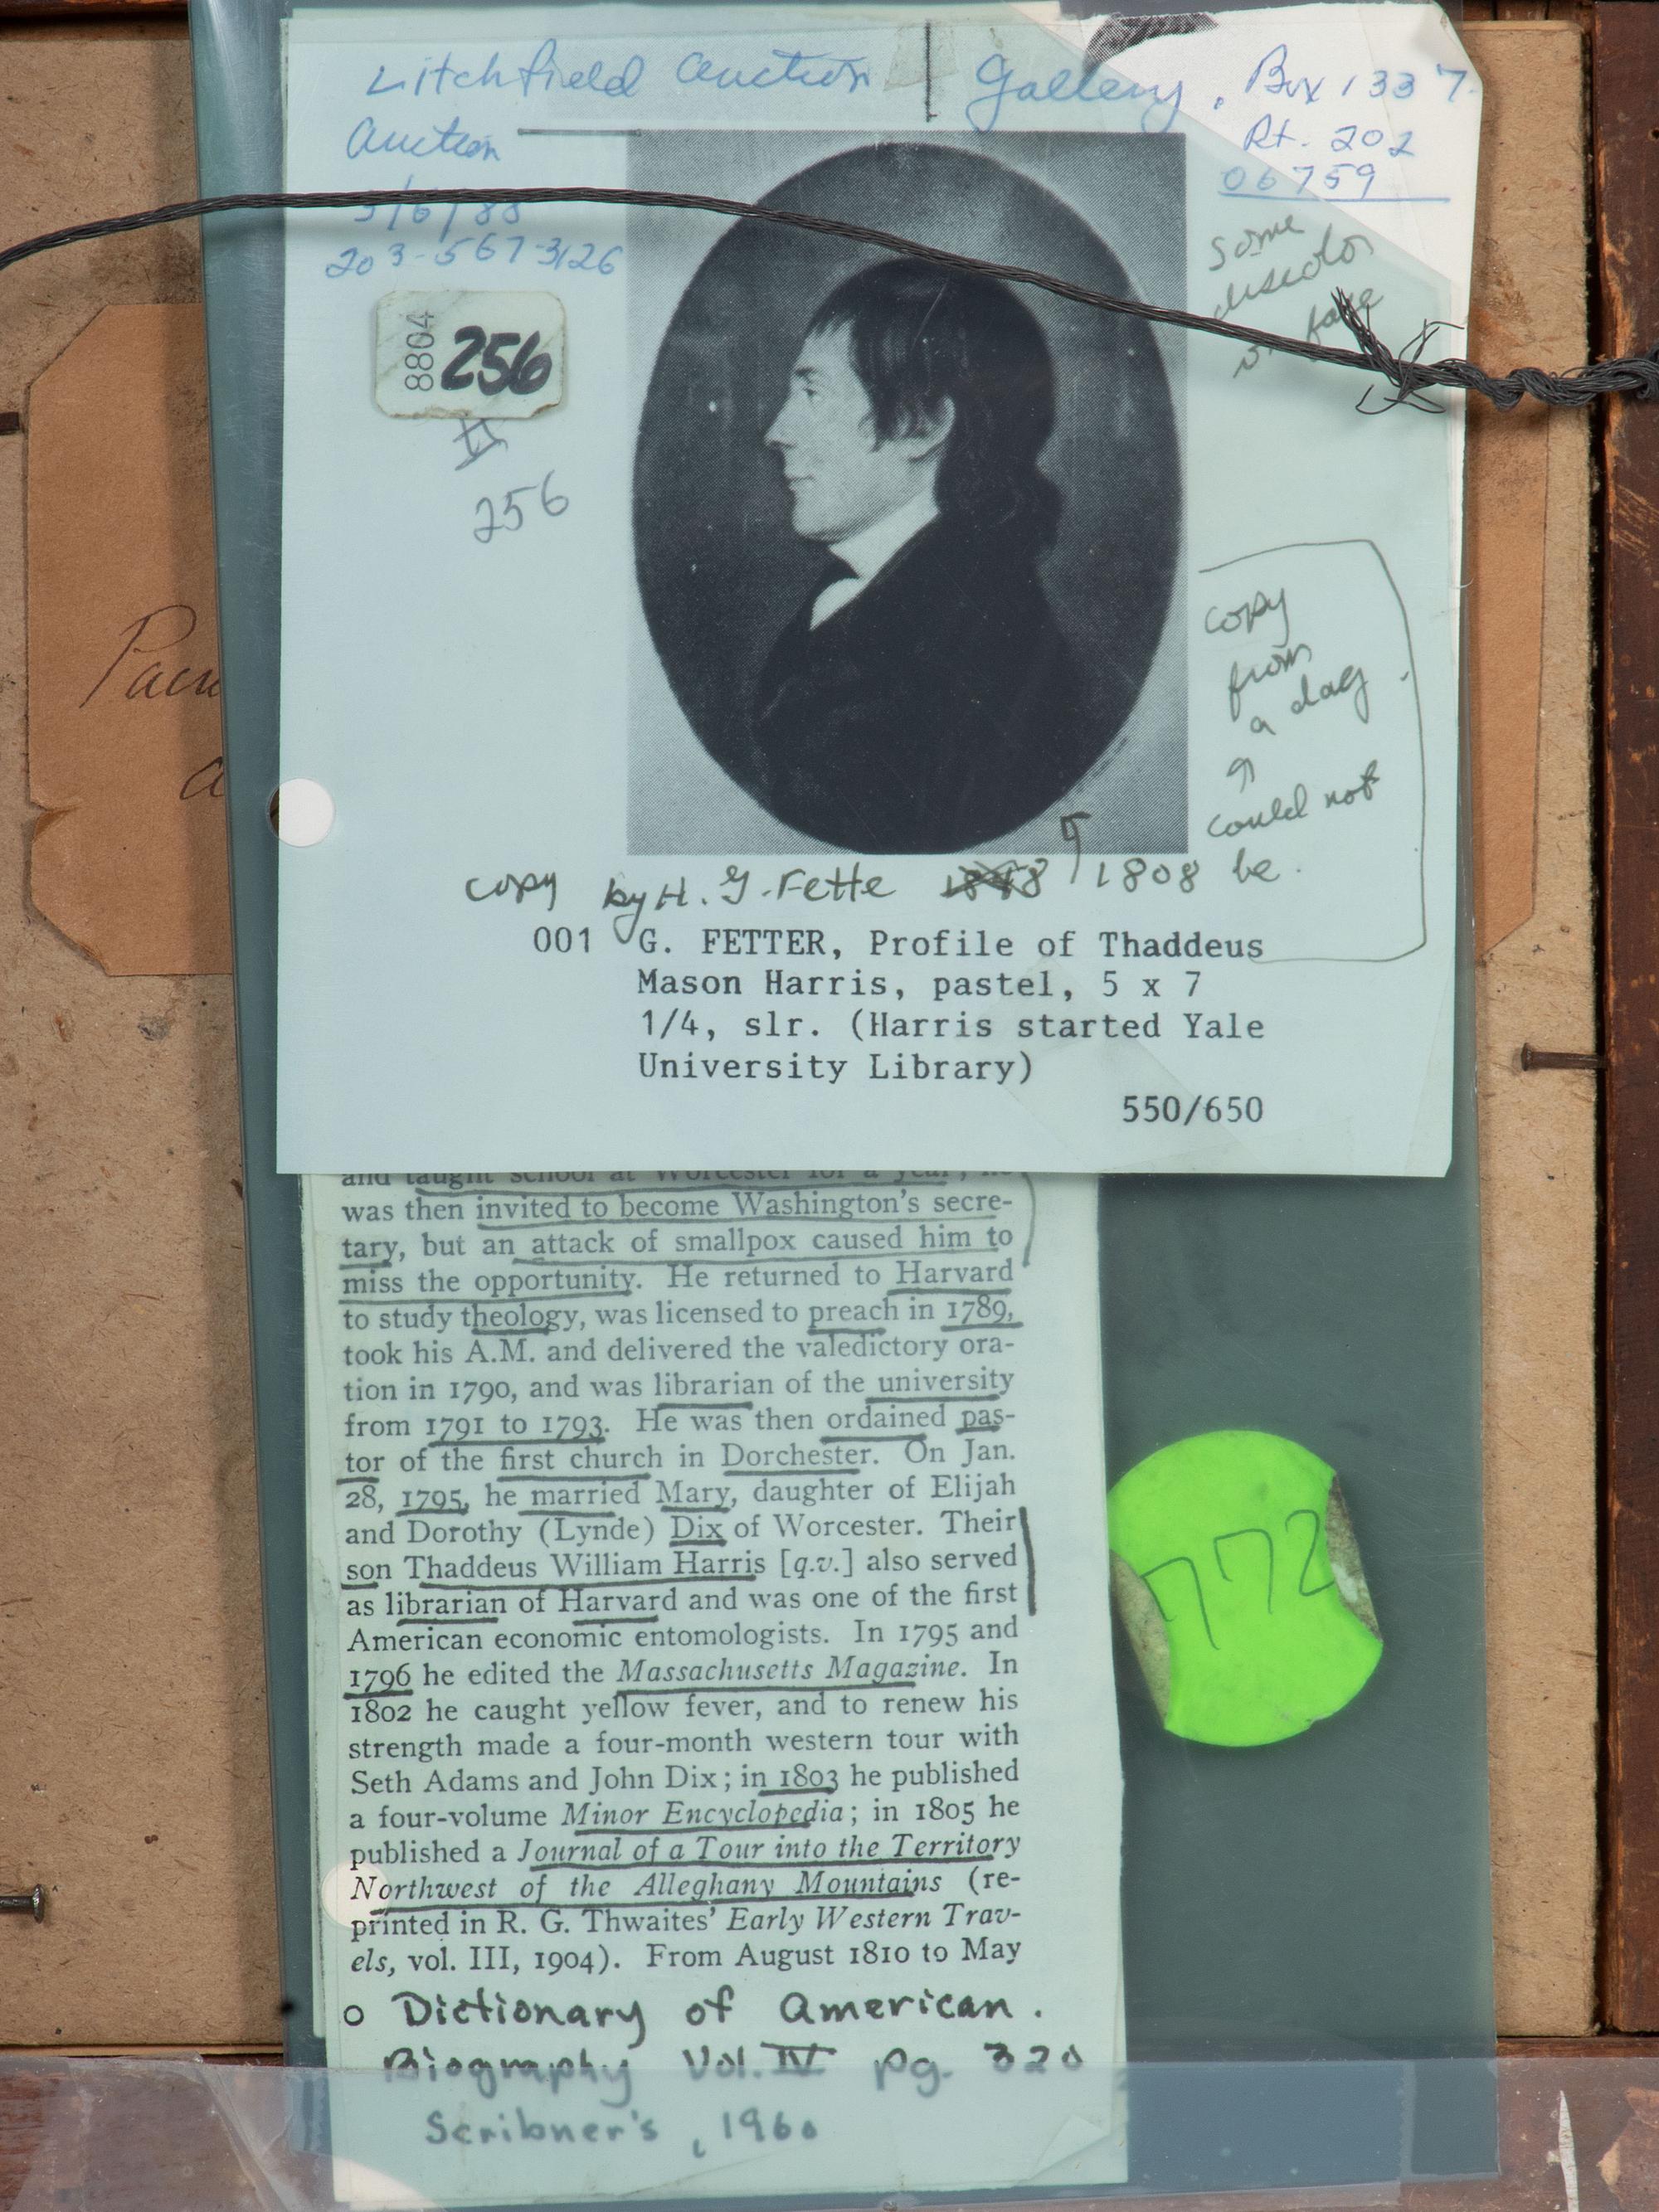 Litchfield Auction Gallery, Box 1337
Rt. 202
06759
Auction
3/6/88
203-567-3126
8804
256
#
256
some
discolor
on face
copy
from
a dag
could not
be.
copy by H. G. Fette 1848 1808
001 G. FETTER, Profile of Thaddeus
Mason Harris, pastel, 5 x 7
1/4, slr. (Harris started Yale
University Library)
550/650
and taught school at Worcester for a year; he
was then invited to become Washington's secre-
tary, but an attack of smallpox caused him to
miss the opportunity. He returned to Harvard
to study theology, was licensed to preach in 1789,
took his A.M. and delivered the valedictory ora-
tion in 1790, and was librarian of the university
from 1791 to 1793. He was then ordained pas-
tor of the first church in Dorchester. On Jan.
28, 1795, he married Mary, daughter of Elijah
and Dorothy (Lynde) Dix of Worcester. Their
son Thaddeus William Harris [q.v.] also served
as librarian of Harvard and was one of the first
American economic entomologists. In 1795 and
1796 he edited the Massachusetts Magazine. In
1802 he caught yellow fever, and to renew his
strength made a four-month western tour with
Seth Adams and John Dix; in 1803 he published
a four-volume Minor Encyclopedia; in 1805 he
published a Journal of a Tour into the Territory
Northwest of the Alleghany Mountains (re-
printed in R. G. Thwaites' Early Western Trav-
els, vol. III, 1904). From August 1810 to May
o Dictionary of American.
Biography Vol. IV pg. 320
Scribner's, 1960
772